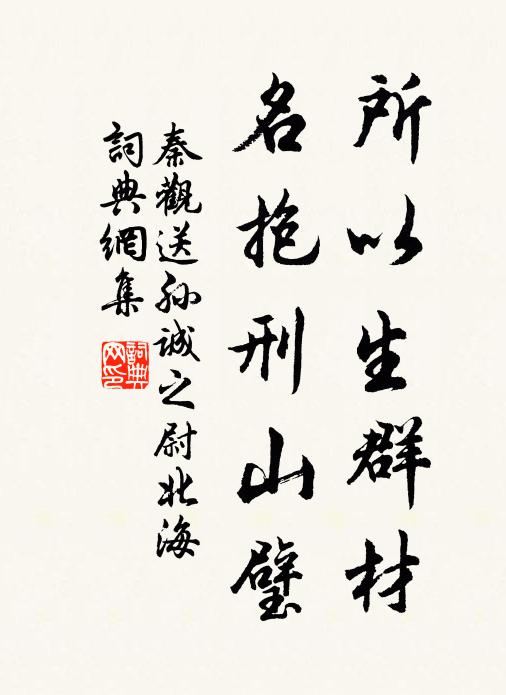 所以生群材
名抱刑山璧
秦觀送孙誠之尉北海
詞典網集
詞典网印